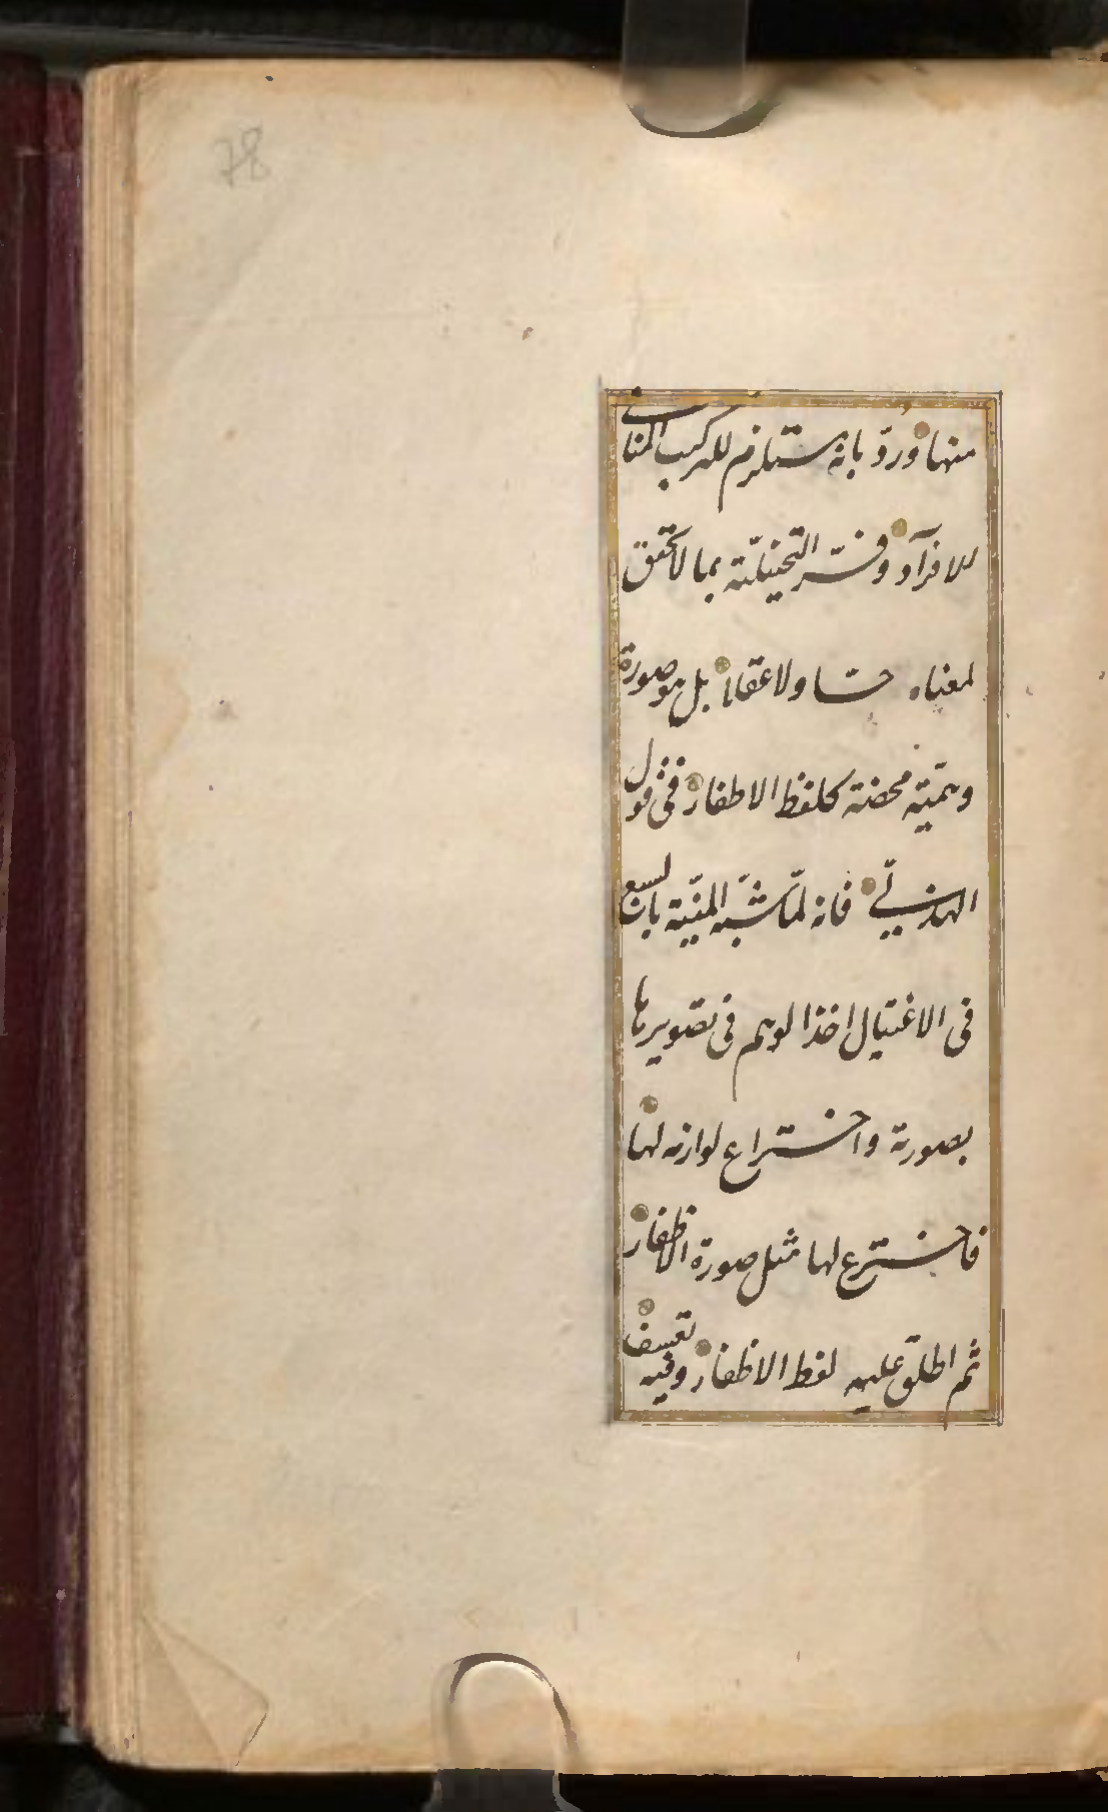 78
منها ورد بانه مستلزم للتركيب المنافى
للافراد وفسّر التخييليّة بما لا تحقق
لمعناه حسّا ولا عقلا بل هو صورة
وهميّة محضة كلفظ الاظفار فى قول
الهذلىّ فانه لمّا شبّه المنيّة بالسبع
فى الاغتيال اخذ الوهم فى تصويرها
بصورته واختراع لوازمه لها
فاخترع لها مثل صورة الاظفار
ثم اطلق عليه لفظ الاظفار وفيه تعسف